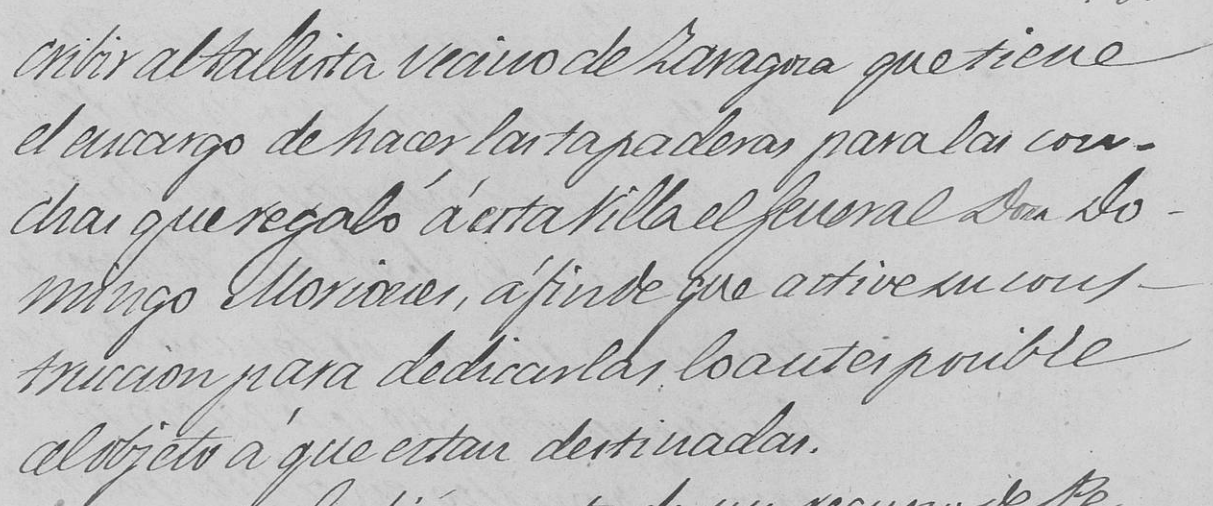 cribir al tallista vecino de Zaragoza que tiene
el encargo de hacer las tapaderas para las con-
chas que regaló á esta Villa el General Don Do-
mingo Moriones, á fin de que active su cons-
truccion para dedicarlas lo antes posible
al objeto á que estan destinadas.
de un recurso de Re